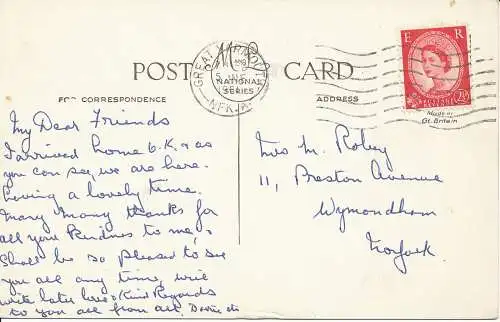 POST CARD
NATIONAL SERIES
GREAT YARMOUTH
NFK
E R
POSTAGE
2½D
Made in
Gt. Britain
FOR CORRESPONDENCE
ADDRESS
My Dear Friends
I arrived home O.K. & as
you can see, we are here.
having a lovely time.
Many many thanks for
all your kindness to me,
Shall be so pleased to see
you all any time, will
write later love & Kind Regards
to you all from all,
Mrs M. Robey
11, Preston Avenue
Wymondham
Norfolk